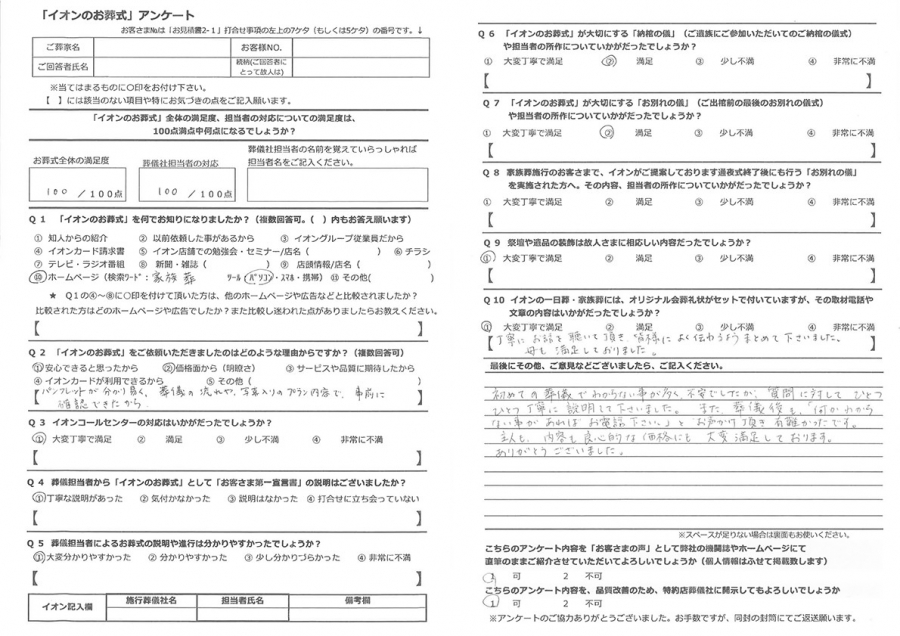 「イオンのお葬式」アンケート
お客さまNo.は「お見積書2-1」打合せ事項の左上の7ケタ（もしくは5ケタ）の番号です。↓
ご葬家名 お客様NO.
ご回答者氏名 続柄(ご回答者にとって故人は)
※当てはまるものに○印をお付け下さい。
【 】には該当のない項目や特にお気づきの点をご記入願います。
「イオンのお葬式」全体の満足度、担当者の対応についての満足度は、
100点満点中何点になるでしょうか？
葬儀社担当者の名前を覚えていらっしゃれば
担当者名をご記入ください。
お葬式全体の満足度 葬儀社担当者の対応
100 /100点 100 /100点
Q１ 「イオンのお葬式」を何でお知りになりましたか？（複数回答可。( ）内もお答え願います）
① 知人からの紹介 ② 以前依頼した事があるから ③ イオングループ従業員だから
④ イオンカード請求書 ⑤ イオン店舗での勉強会・セミナー/店名（ ） ⑥ チラシ
⑦ テレビ・ラジオ番組 ⑧ 新聞・雑誌（ ） ⑨ 店頭情報/店名（ ）
⑩ ホームページ（検索ワード：家族葬 ツール(パソコン・スマホ・携帯) ⑪ その他( )
★ Q１の④～⑧に○印を付けて頂いた方は、他のホームページや広告などと比較されましたか？
比較された方はどのホームページや広告でしたか？また比較し迷われた点がありましたらお教えください。
【 】
Q２ 「イオンのお葬式」をご依頼いただきましたのはどのような理由からですか？（複数回答可）
①安心できると思ったから ②価格面から（明瞭さ） ③サービスや品質に期待したから
④イオンカードが利用できるから ⑤その他（ ）
【パンフレットが分かり易く、葬儀の流れや、写真入りのプラン内容で、事前に
確認できたから 】
Q３ イオンコールセンターの対応はいかがだったでしょうか？
① 大変丁寧で満足 ② 満足 ③ 少し不満 ④ 非常に不満
【 】
Q４ 葬儀担当者から「イオンのお葬式」として「お客さま第一宣言書」の説明はございましたか？
①丁寧な説明があった ②気付かなかった ③説明はなかった ④打合せに立ち会っていない
【 】
Q５ 葬儀担当者によるお葬式の説明や進行は分かりやすかったでしょうか？
①大変分かりやすかった ②分かりやすかった ③少し分かりづらかった ④非常に不満
【 】
イオン記入欄 施行葬儀社名 担当者氏名 備考欄
Q６ 「イオンのお葬式」が大切にする「納棺の儀」（ご遺族にご参加いただいてのご納棺の儀式）
や担当者の所作についていかがだったでしょうか？
① 大変丁寧で満足 ② 満足 ③ 少し不満 ④ 非常に不満
【 】
Q７ 「イオンのお葬式」が大切にする「お別れの儀」（ご出棺前の最後のお別れの儀式）
や担当者の所作についていかがだったでしょうか？
① 大変丁寧で満足 ② 満足 ③ 少し不満 ④ 非常に不満
【 】
Q８ 家族葬施行のお客さまで、イオンがご提案しております通夜式終了後にも行う「お別れの儀」
を実施された方へ。その内容、担当者の所作についていかがでしたでしょうか？
① 大変丁寧で満足 ② 満足 ③ 少し不満 ④ 非常に不満
【 】
Q９ 祭壇や遺品の装飾は故人さまに相応しい内容だったでしょうか？
① 大変丁寧で満足 ② 満足 ③ 少し不満 ④ 非常に不満
【 】
Q10 イオンの一日葬・家族葬には、オリジナル会葬礼状がセットで付いていますが、その取材電話や
文章の内容はいかがだったでしょうか？
① 大変丁寧で満足 ② 満足 ③ 少し不満 ④ 非常に不満
【丁寧にお話を聴いて頂き、皆様によく伝わるようまとめて下さいました。
母も満足しておりました。 】
最後にその他、ご意見などございましたら、ご記入ください。
初めての葬儀でわからない事が多く、不安でしたが、質問に対して ひとつ
ひとつ丁寧に説明して下さいました。また、葬儀後も、「何かわから
ない事があれば お電話下さい。」と お声かけ頂き 有難かったです。
主人も、内容も良心的な価格にも 大変満足しております。
ありがとうございました。
※スペースが足りない場合は裏面もお使いください。
こちらのアンケート内容を「お客さまの声」として弊社の機関誌やホームページにて
直筆のままご紹介させていただいてよろしいでしょうか（個人情報はふせて掲載致します）
1 可 2 不可
こちらのアンケート内容を、品質改善のため、特約店葬儀社に開示してもよろしいでしょうか
1 可 2 不可
※アンケートのご協力ありがとうございました。お手数ですが、同封の封筒にてご返送願います。